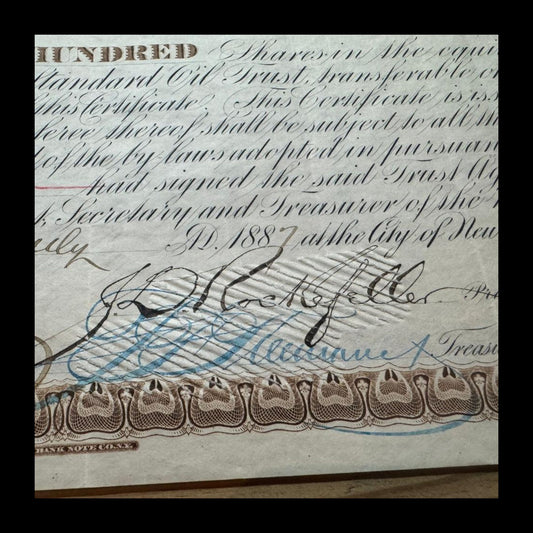 HUNDRED Shares in the equi
Standard Oil Trust, transferable o
this Certificate. This Certificate is iss
feree thereof shall be subject to all th
of the by-laws adopted in pursuan
had signed the said Trust Ag
Secretary and Treasurer of the
July A.D. 1887 at the City of New
J D Rockefeller
Treasu
BANK NOTE CO. N.Y.